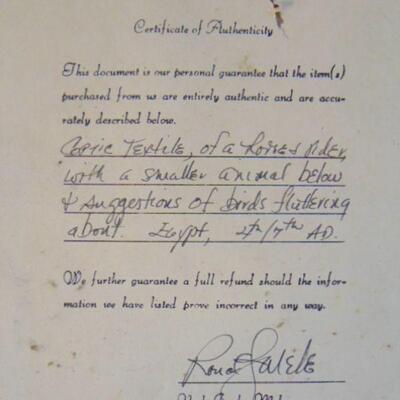 Certificate of Authenticity
This document is our personal guarantee that the item(s)
purchased from us are entirely authentic and are accu-
rately described below.
Coptic Textile, of a horse rider,
with a smaller animal below
& suggestions of birds fluttering
about. Egypt, 4th/7th AD.
We further guarantee a full refund should the infor-
mation we have listed prove incorrect in any way.